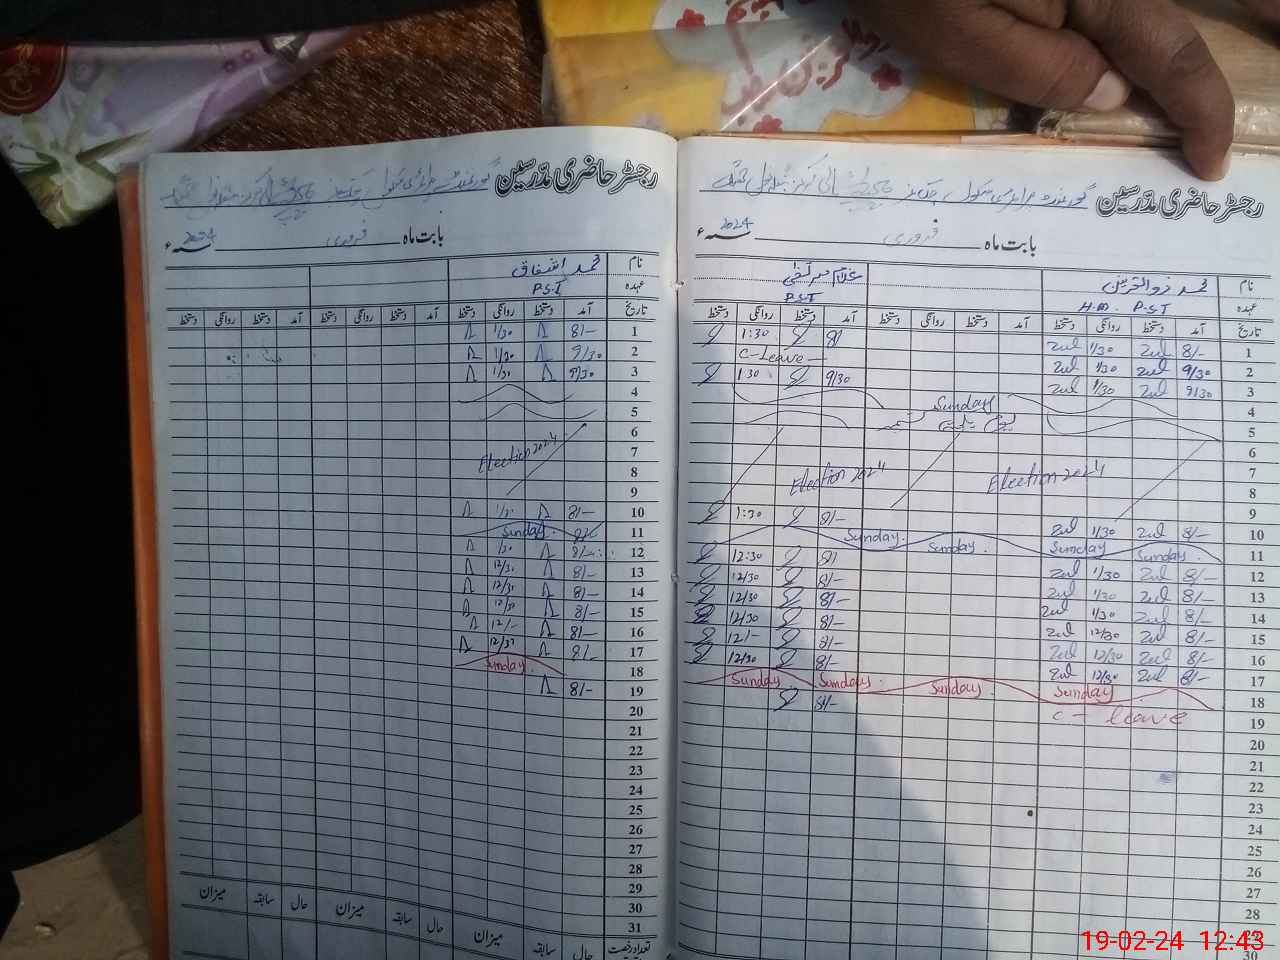 رجسٹر حاضری مدرسین گورنمنٹ پرائمری سکول چک نمبر 256
بابت ماہ فروری 2024ء
نام محمد ذوالقرنین غلام مرتضیٰ
عہدہ H.M. P.S.T P.S.T
تاریخ آمد دستخط روانگی دستخط آمد دستخط روانگی دستخط آمد دستخط روانگی دستخط
1 8/- 1/30 8/ 1:30
2 9/30 1/30 C-Leave
3 9/30 1/30 9/30 1:30
4 Sunday
5
6
7
8 Election 2024 Election 2024
9
10 8/- 1/30 8/- 1:30
11 Sunday Sunday Sunday. Sunday.
12 8/- 1/30 8/ 12:30
13 8/- 1/30 8/- 12/30
14 8/- 1/30 8/- 12/30
15 8/- 12/30 8/- 12/30
16 8/- 12/30 8/- 12/-
17 8/- 12/30 8/- 12/30
18 Sunday Sunday Sunday Sunday
19 C - leave 8/-
20
21
22
23
24
25
26
27
28
29
30
رجسٹر حاضری مدرسین گورنمنٹ پرائمری سکول چک نمبر 256
بابت ماہ فروری 2024ء
نام محمد اشفاق
عہدہ P.S.T
تاریخ آمد دستخط روانگی دستخط آمد دستخط روانگی دستخط آمد دستخط روانگی دستخط
1 8/- 1/30
2 9/30 1/30
3 9/30 1/30
4
5
6
7 Election 2024
8
9
10 8/- 1/30
11 Sunday.
12 8/- 1/30
13 8/- 12/30
14 8/- 12/30
15 8/- 12/30
16 8/- 12/-
17 8/- 12/30
18 Sunday.
19 8/-
20
21
22
23
24
25
26
27
28
29
30
31
حال سابقہ میزان حال سابقہ میزان حال سابقہ میزان
تعداد رخصت
19-02-24 12:43